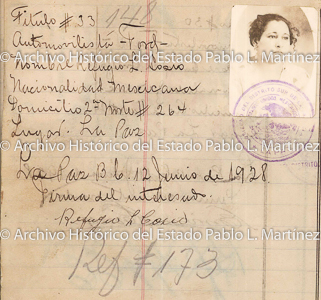 Titulo # 33 148
Automovilista - Ford -
Nombre Refugio L. Cosio
Nacionalidad Mexicana
Domicilio 2ª Norte # 264
Lugar. La Paz
© Archivo Histórico del Estado Pablo L. Martínez
La Paz B.C. 12 Junio de 1928
Firma del interesado
Refugio L Cosio
© Archivo Histórico del Estado Pablo L. Martínez
Ref # 173